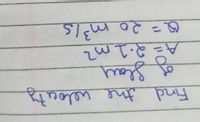 Find the velocity
of flow
A = 2.1 m²
Q = 20 m³/s